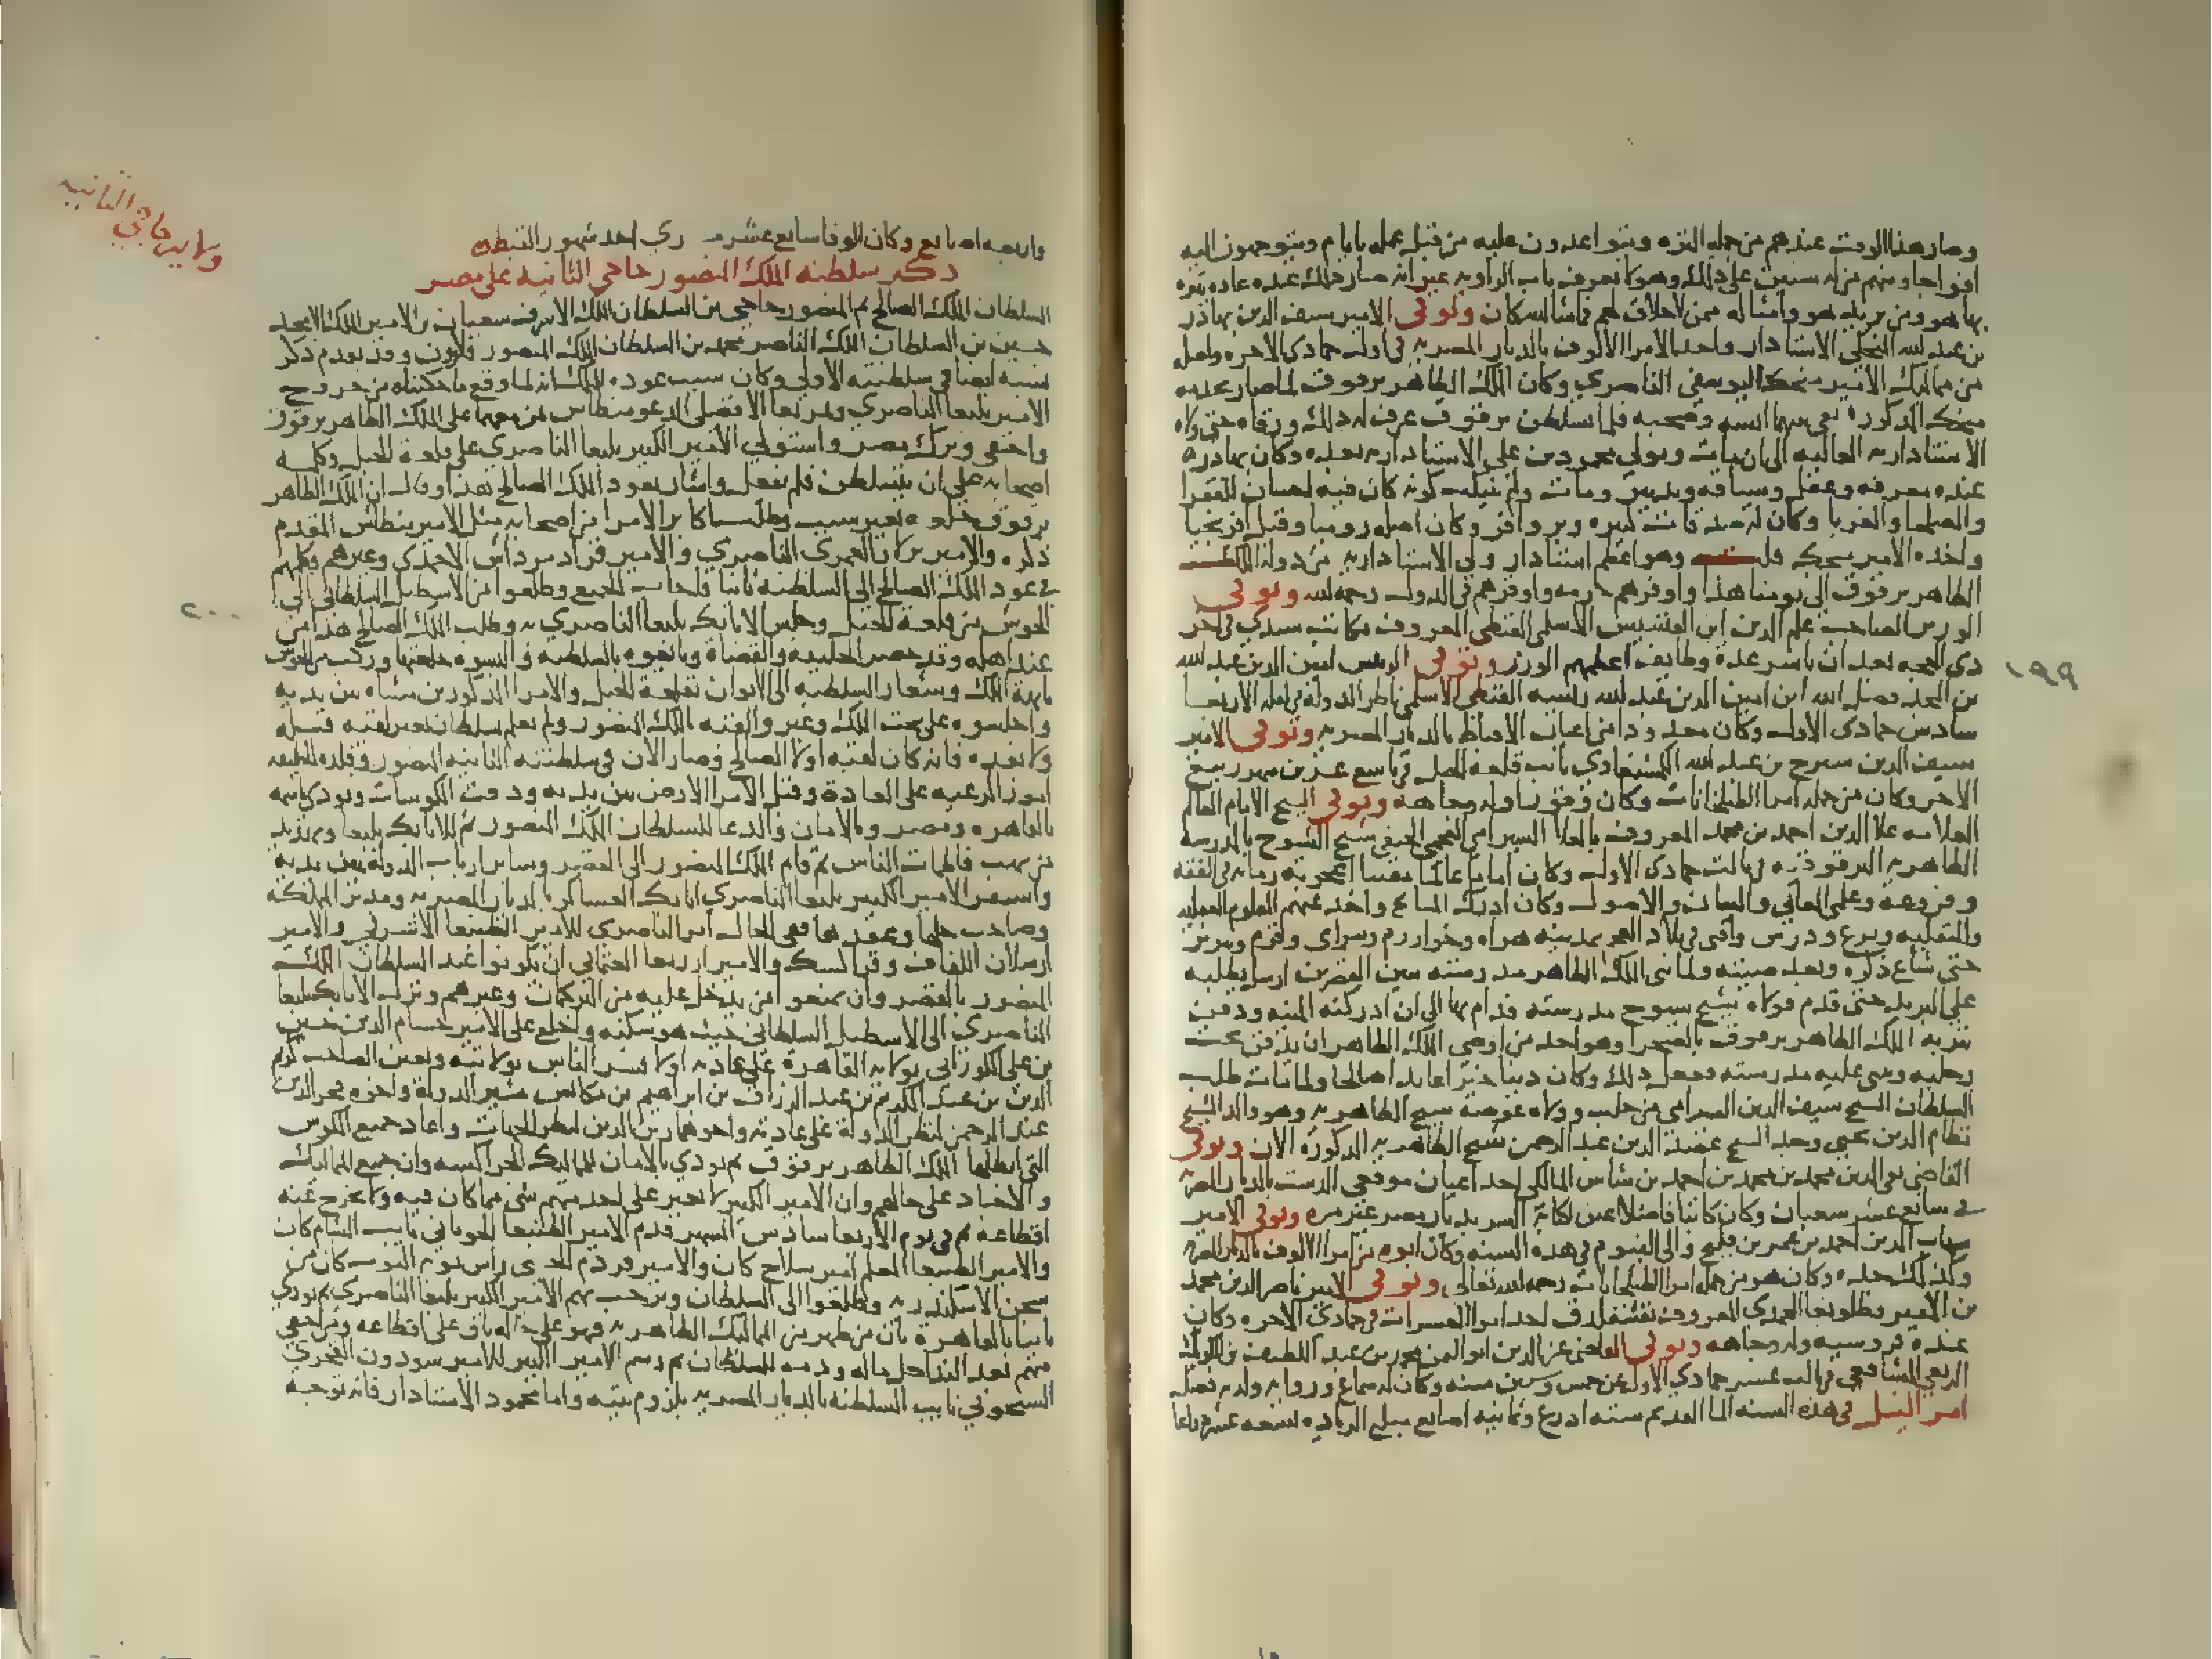 وصار هذا الوقت عندهم من جملة النزه ويتواعدون عليه من قبل عمله بايام ويتوجهون اليه
افواجا ومنهم من له سنين على ذلك وهو لا يعرف باب الزاوية غير انه صار ذلك عنده عادة
بها هو ومن يريده هو وامثاله ممن لا خلاق لهم فما شا الله كان وتوفي الامير سيف الدين بهادر
بن عبد الله المنجكي الاستادار واحد الامرا الالوف بالديار المصرية في اول جمادى الاخره واصله
من مماليك الامير منجك اليوسفي الناصري وكان الملك الظاهر برقوق لما صار بخدمة
منجك المذكور بقي بينهما انسه وصحبه فلما تسلطن برقوق عرف له ذلك ورقاه حتى ولاه
الاستادارية العاليه الى ان مات وتولى محمود بن علي الاستادارية بعده وكان بهادر
عنده معرفه وعقل وسياقه وتدبير ومات ولم ينكب لكونه كان فيه احسان للفقرا
والصلحا والغربا وكان له صدقات كثيره وبر وافر وكان اصله روميا وقيل افرنجيا
واخذه الامير منجك قلت وهو اعظم استادار ولي الاستادارية من دولة الملك
الظاهر برقوق الى يومنا هذا واوفرهم حرمه واوقرهم في الدول رحمه الله وتوفي
الوزير الصاحب علم الدين ابن القسيس الاسلمي القبطي المعروف بكاتب سيدي في اخر
ذي الحجه بعد ان باشر عدة وظايف اعظمهم الوزر وتوفي الرييس امين الدين عبد الله
بن المجد فضل الله ابن امين الدين عبد الله ريشه القبطي الاسلمي ناظر الدوله في ليلة الاربعا
سادس جمادى الاولى وكان معدودا من اعيان الاقباط بالديار المصرية وتوفي الامير
سيف الدين سبرج بن عبد الله الكمشبغاوي نايب قلعة الجبل في تاسع عشرين شهر ربيع
الاخر وكان من جملة امرا الطبلخانات وكان وقورا وله وجاهه وتوفي الشيخ الامام العالم
العلامه علا الدين احمد بن محمد المعروف بالعلا السيرامي العجمي الحنفي شيخ الشيوخ بالمدرسة
الظاهريه البرقوقيه في ثالث جمادى الاولى وكان اماما عالما مفتيا اعجوبة زمانه في الفقه
وفروعه وعلمي المعاني والبيان والاصول وكان ادرك المشايخ واخذ عنهم العلوم العقليه
والنقليه وبرع ودرس وافتى في بلاد العجم بمدينه هراه وخوارزم وسراي وقرم وتبريز
حتى شاع ذكره وبعد صيته ولما بنى الملك الظاهر مدرسته بين القصرين ارسل يطلبه
على البريد حتى قدم فولاه شيخ شيوخ مدرسته فدام بها الى ان ادركته المنيه ودفن
بتربة الملك الظاهر برقوق بالصحرا وهو احد من اوصى الملك الظاهر ان يدفن تحت
رجليه ويبني عليه مدرسته ففعل ذلك وكان دينا خيرا عابدا صالحا ولما مات طلب
السلطان الشيخ سيف الدين السيرامي من حلب وولاه عوضه شيخ الظاهريه وهو والد الشيخ
نظام الدين يحيى وجد الشيخ عضد الدين عبد الرحمن شيخ الظاهريه المذكورة الان وتوفي
القاضي تقي الدين محمد بن محمد بن احمد بن شاس المالكي احد اعيان موقعي الدست بالديار المصرية
في سابع عشر شعبان وكان كاتبا فاضلا عين لكتابة السر بديار مصر غير مره وتوفي الامير
شهاب الدين احمد بن عمر بن قليج والي الفيوم في هذه السنه وكان ابوه من امرا الالوف بالديار المصرية
وكذلك جده وكان هو من جملة امرا الطبلخانات رحمه الله تعالى وتوفي الامير ناصر الدين محمد
بن الامير قطلوبغا المحمدي المعروف بقشقلدق احد امرا العشرات في جمادى الاخره وكان
عنده فروسيه وله وجاهه وتوفي القاضي عز الدين ابو اليمن محمد بن عبد اللطيف بن الكويك
الربعي الشافعي في ثالث عشر جمادي الاولى عن خمس وسبعين سنه وكان له سماع وروايه ولديه فضل
امر النيل في هذه السنه الما القديم سته اذرع وثمانيه اصابع مبلغ الزياده تسعه عشر ذراعا
١٩٩
واربعه اصابع وكان الوفا سابع عشر مسري احد شهور القبط
ذكر سلطنة الملك المنصور حاجي الثانية على مصر
السلطان الملك الصالح ثم المنصور حاجي بن السلطان الملك الاشرف شعبان بن الامير الملك الامجد
حسين بن السلطان الملك الناصر محمد بن السلطان الملك المنصور قلاوون وقد تقدم ذكر
نسبه ايضا في سلطنته الاولى وكان سبب عوده للملك انه لما وقع ما حكيناه من خروج
الامير يلبغا الناصري وتمربغا الافضلي المدعو منطاش بمن معهما على الملك الظاهر برقوق
واختفى وترك مصر واستولى الامير الكبير يلبغا الناصري على قلعة الجبل وكلمه
اصحابه على ان يتسلطن فلم يفعل واشار بعود الملك الصالح هذا وقال ان الملك الظاهر
برقوق خلعه بغير سبب وطلب اكابر الامرا من اصحابه مثل الامير منطاش المقدم
ذكره والامير بزلار العمري الناصري والامير قرا دمرداش الاحمدي وغيرهم وكلمهم
في عود الملك الصالح الى السلطنه ثانيا فاجاب الجميع وطلعوا من الاسطبل السلطاني الى
الحوش من قلعة الجبل وجلس الاتابك يلبغا الناصري به وطلب الملك الصالح هذا من
عند اهله وقد حضر الخليفة والقضاة وبايعوه بالسلطنه والبسوه خلعتها وركب من الحوش
بابهة الملك وشعار السلطنه الى الايوان بقلعة الجبل والامرا المذكورين مشاه بين يديه
واجلسوه على تخت الملك وغير والقبه بالملك المنصور ولم نعلم سلطان تغير لقبه قبله
ولا بعده فانه كان لقبه اولا الصالح وصار الان في سلطنته الثانيه المنصور وقلده الخليفه
امور الرعيه على العادة وقبل الامرا الارض بين يديه ودقت الكوسات ونودي باسمه
بالقاهره ومصر وبالامان والدعا للسلطان الملك المنصور ثم للاتابك يلبغا وتهديد
من نهب فاطمان الناس ثم قام الملك المنصور الى القصر وساير ارباب الدوله بين يديه
واستمر الامير الكبير يلبغا الناصري اتابك العساكر بالديار المصريه ومدبر المملكة
وصاحب حلها وعقدها ففي الحال امر الناصري للامير الطنبغا الاشرفي والامير
ارسلان اللفاف وقرا كسك والامير اردبغا العثماني ان يكونوا عند السلطان الملك
المنصور بالقصر وان يمنعوا من يدخل عليه من التركمان وغيرهم ونزل الاتابك يلبغا
الناصري الى الاسطبل السلطاني حيث هو سكنه واخلع على الامير حسام الدين حسين
بن علي الكوراني بولاية القاهرة على عادته اولا فسر الناس بولايته وتعين الصاحب كريم
الدين بن عبد الكريم بن عبد الرزاق بن ابراهيم بن مكانس مشير الدولة واخوه فخر الدين
عبد الرحمن لنظر الدولة على عادته واخوهما زين الدين لنظر الجهات واعاد جميع المكوس
التي ابطلها الملك الظاهر برقوق ثم نودي بالامان للمماليك الجراكسه وان جميع المماليك
والاجناد على حالهم وان الامير الكبير لا يغير على احد منهم شي مما كان فيه ولا يخرج عنه
اقطاعه ثم في يوم الاربعا سادس الشهر قدم الامير الطنبغا الجوباني نايب الشام كان
والامير الطنبغا المعلم امير سلاح كان والامير قردم الحسني راس نوبة النوب كان من
سجن الاسكندرية وطلعوا الى السلطان وترحب بهم الامير الكبير يلبغا الناصري ثم نودي
ثانيا بالقاهرة بان من ظهر من المماليك الظاهرية فهو على حاله باق على اقطاعه ومن اختفى
منهم بعد الندا حل ماله ودمه للسلطان ثم رسم الامير الكبير للامير سودون الفخري
الشيخوني نايب السلطنه بالديار المصريه بلزوم بيته واما محمود الاستادار فانه توجه
ولاية حاجي الثانيه
٢٠٠